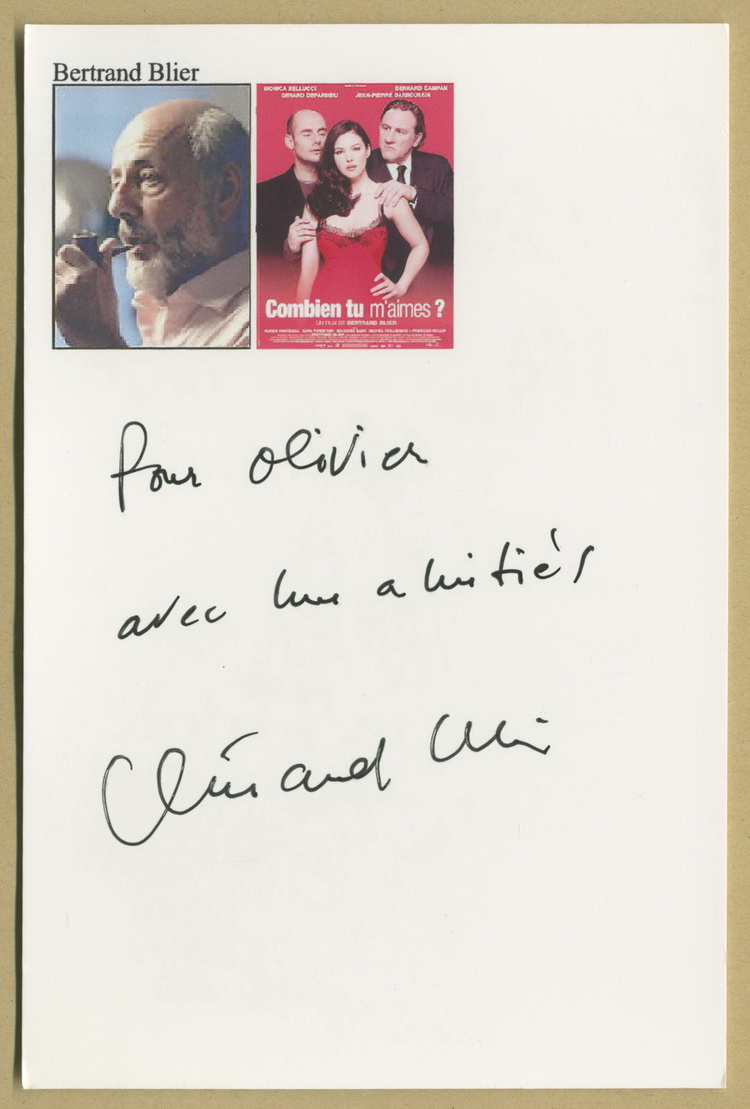 Bertrand Blier
MONICA BELLUCCI
BERNARD CAMPAN
GERARD DEPARDIEU
JEAN-PIERRE DARROUSSIN
Combien tu m'aimes ?
UN FILM DE BERTRAND BLIER
Pour Olivier
avec mes amitiés